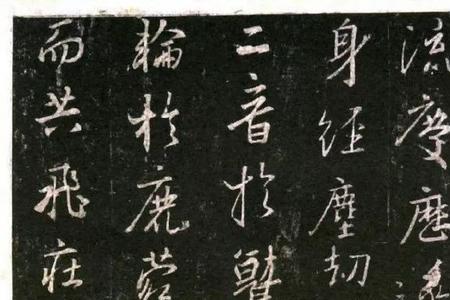 流慶歷遂
身經塵劫
二音於鷲
輪於鹿苑
而共飛莊